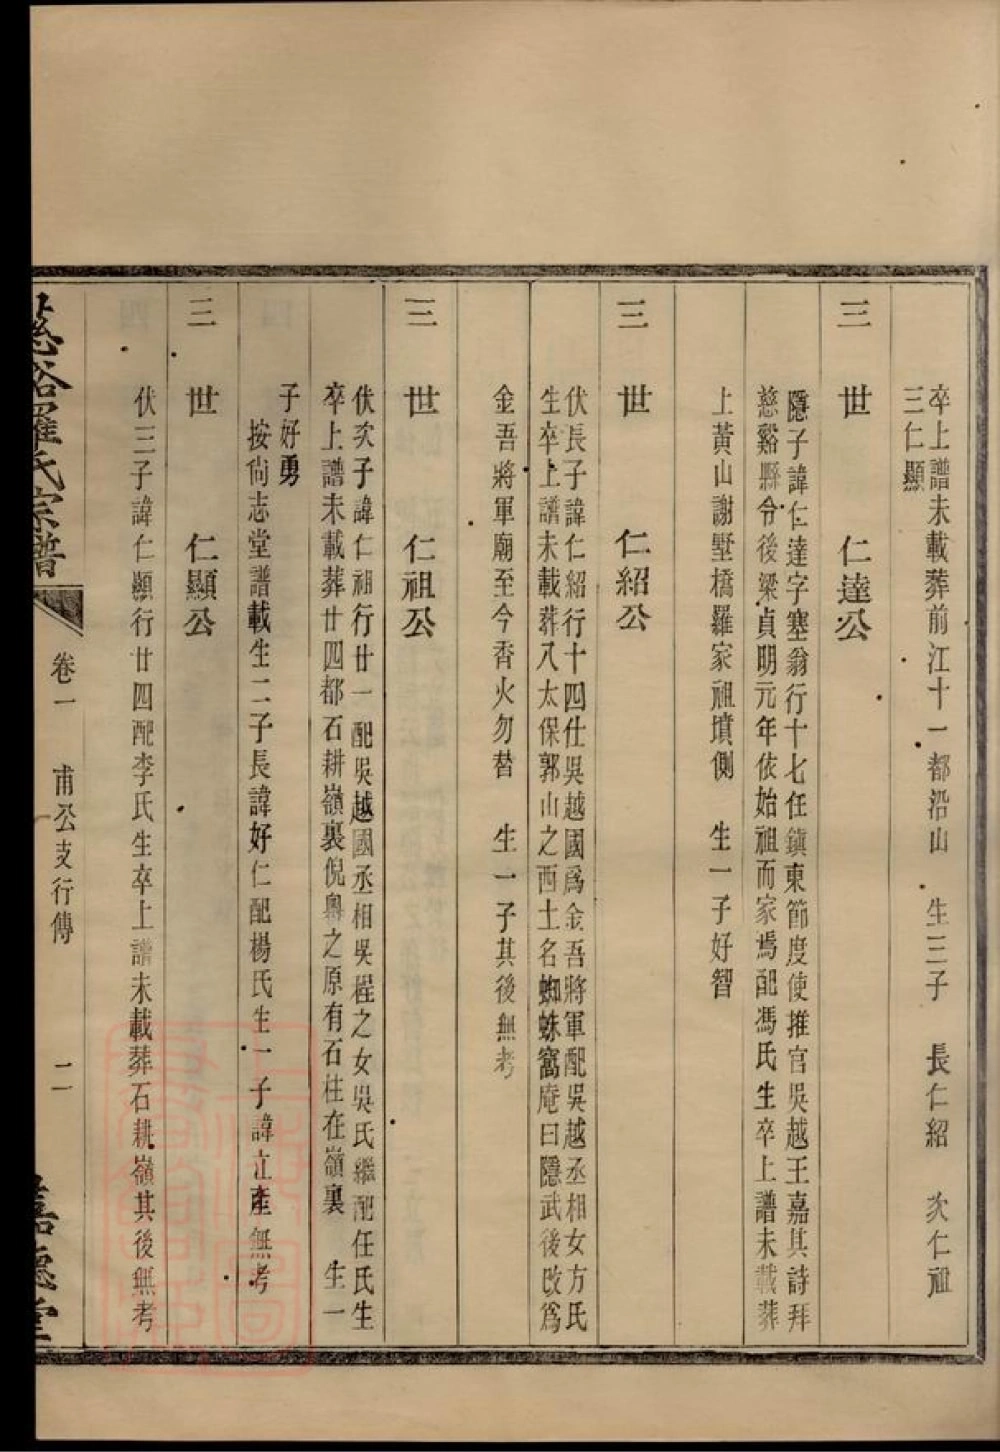 卒上譜未載葬前江十一都沿山　生三子　長仁紹　次仁祖
三仁顯
三　世　仁達公
隱子諱仁達字塞翁行十七任鎮東節度使推官吳越王嘉其詩拜
慈谿縣令後梁貞明元年依始祖而家焉配馮氏生卒上譜未載葬
上黃山謝墅橋羅家祖墳側　生一子好智
三　世　仁紹公
伏長子諱仁紹行十四仕吳越國爲金吾將軍配吳越丞相女方氏
生卒上譜未載葬八太保郭山之西土名蜘蛛窩庵曰隱武後改爲
金吾將軍廟至今香火勿替　生一子其後無考
三　世　仁祖公
伏次子諱仁祖行廿一配吳越國丞相吳程之女吳氏繼配任氏生
卒上譜未載葬廿四都石耕嶺裏倪嶴之原有石柱在嶺裏　生一
子好勇
按尙志堂譜載生二子長諱好仁配楊氏生一子諱立產無考
三　世　仁顯公
伏三子諱仁顯行廿四配李氏生卒上譜未載葬石耕嶺其後無考
慈谿羅氏宗譜　卷一　甫公支行傳　二　嘉德堂